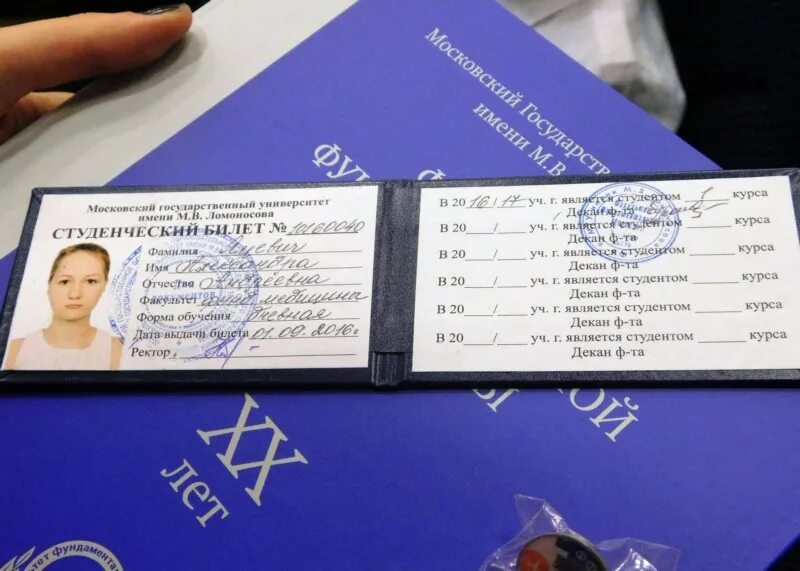 Московский Государств
имени М.В
ФУ
Московский государственный университет
имени М.В. Ломоносова
СТУДЕНЧЕСКИЙ БИЛЕТ № 10160040
Фамилия
Имя Александра
Отчество Андреевна
Факультет фунд. медицины
Форма обучения дневная
Дата выдачи билета 01.09.2016г
Ректор
В 20 16/17 уч. г. является студентом 1 курса
Декан ф-та
В 20___/___ уч. г. является студентом ______ курса
Декан ф-та
В 20___/___ уч. г. является студентом ______ курса
Декан ф-та
В 20___/___ уч. г. является студентом ______ курса
Декан ф-та
В 20___/___ уч. г. является студентом ______ курса
Декан ф-та
В 20___/___ уч. г. является студентом ______ курса
Декан ф-та
ОЙ
Ы
XX
лет
т фундамента